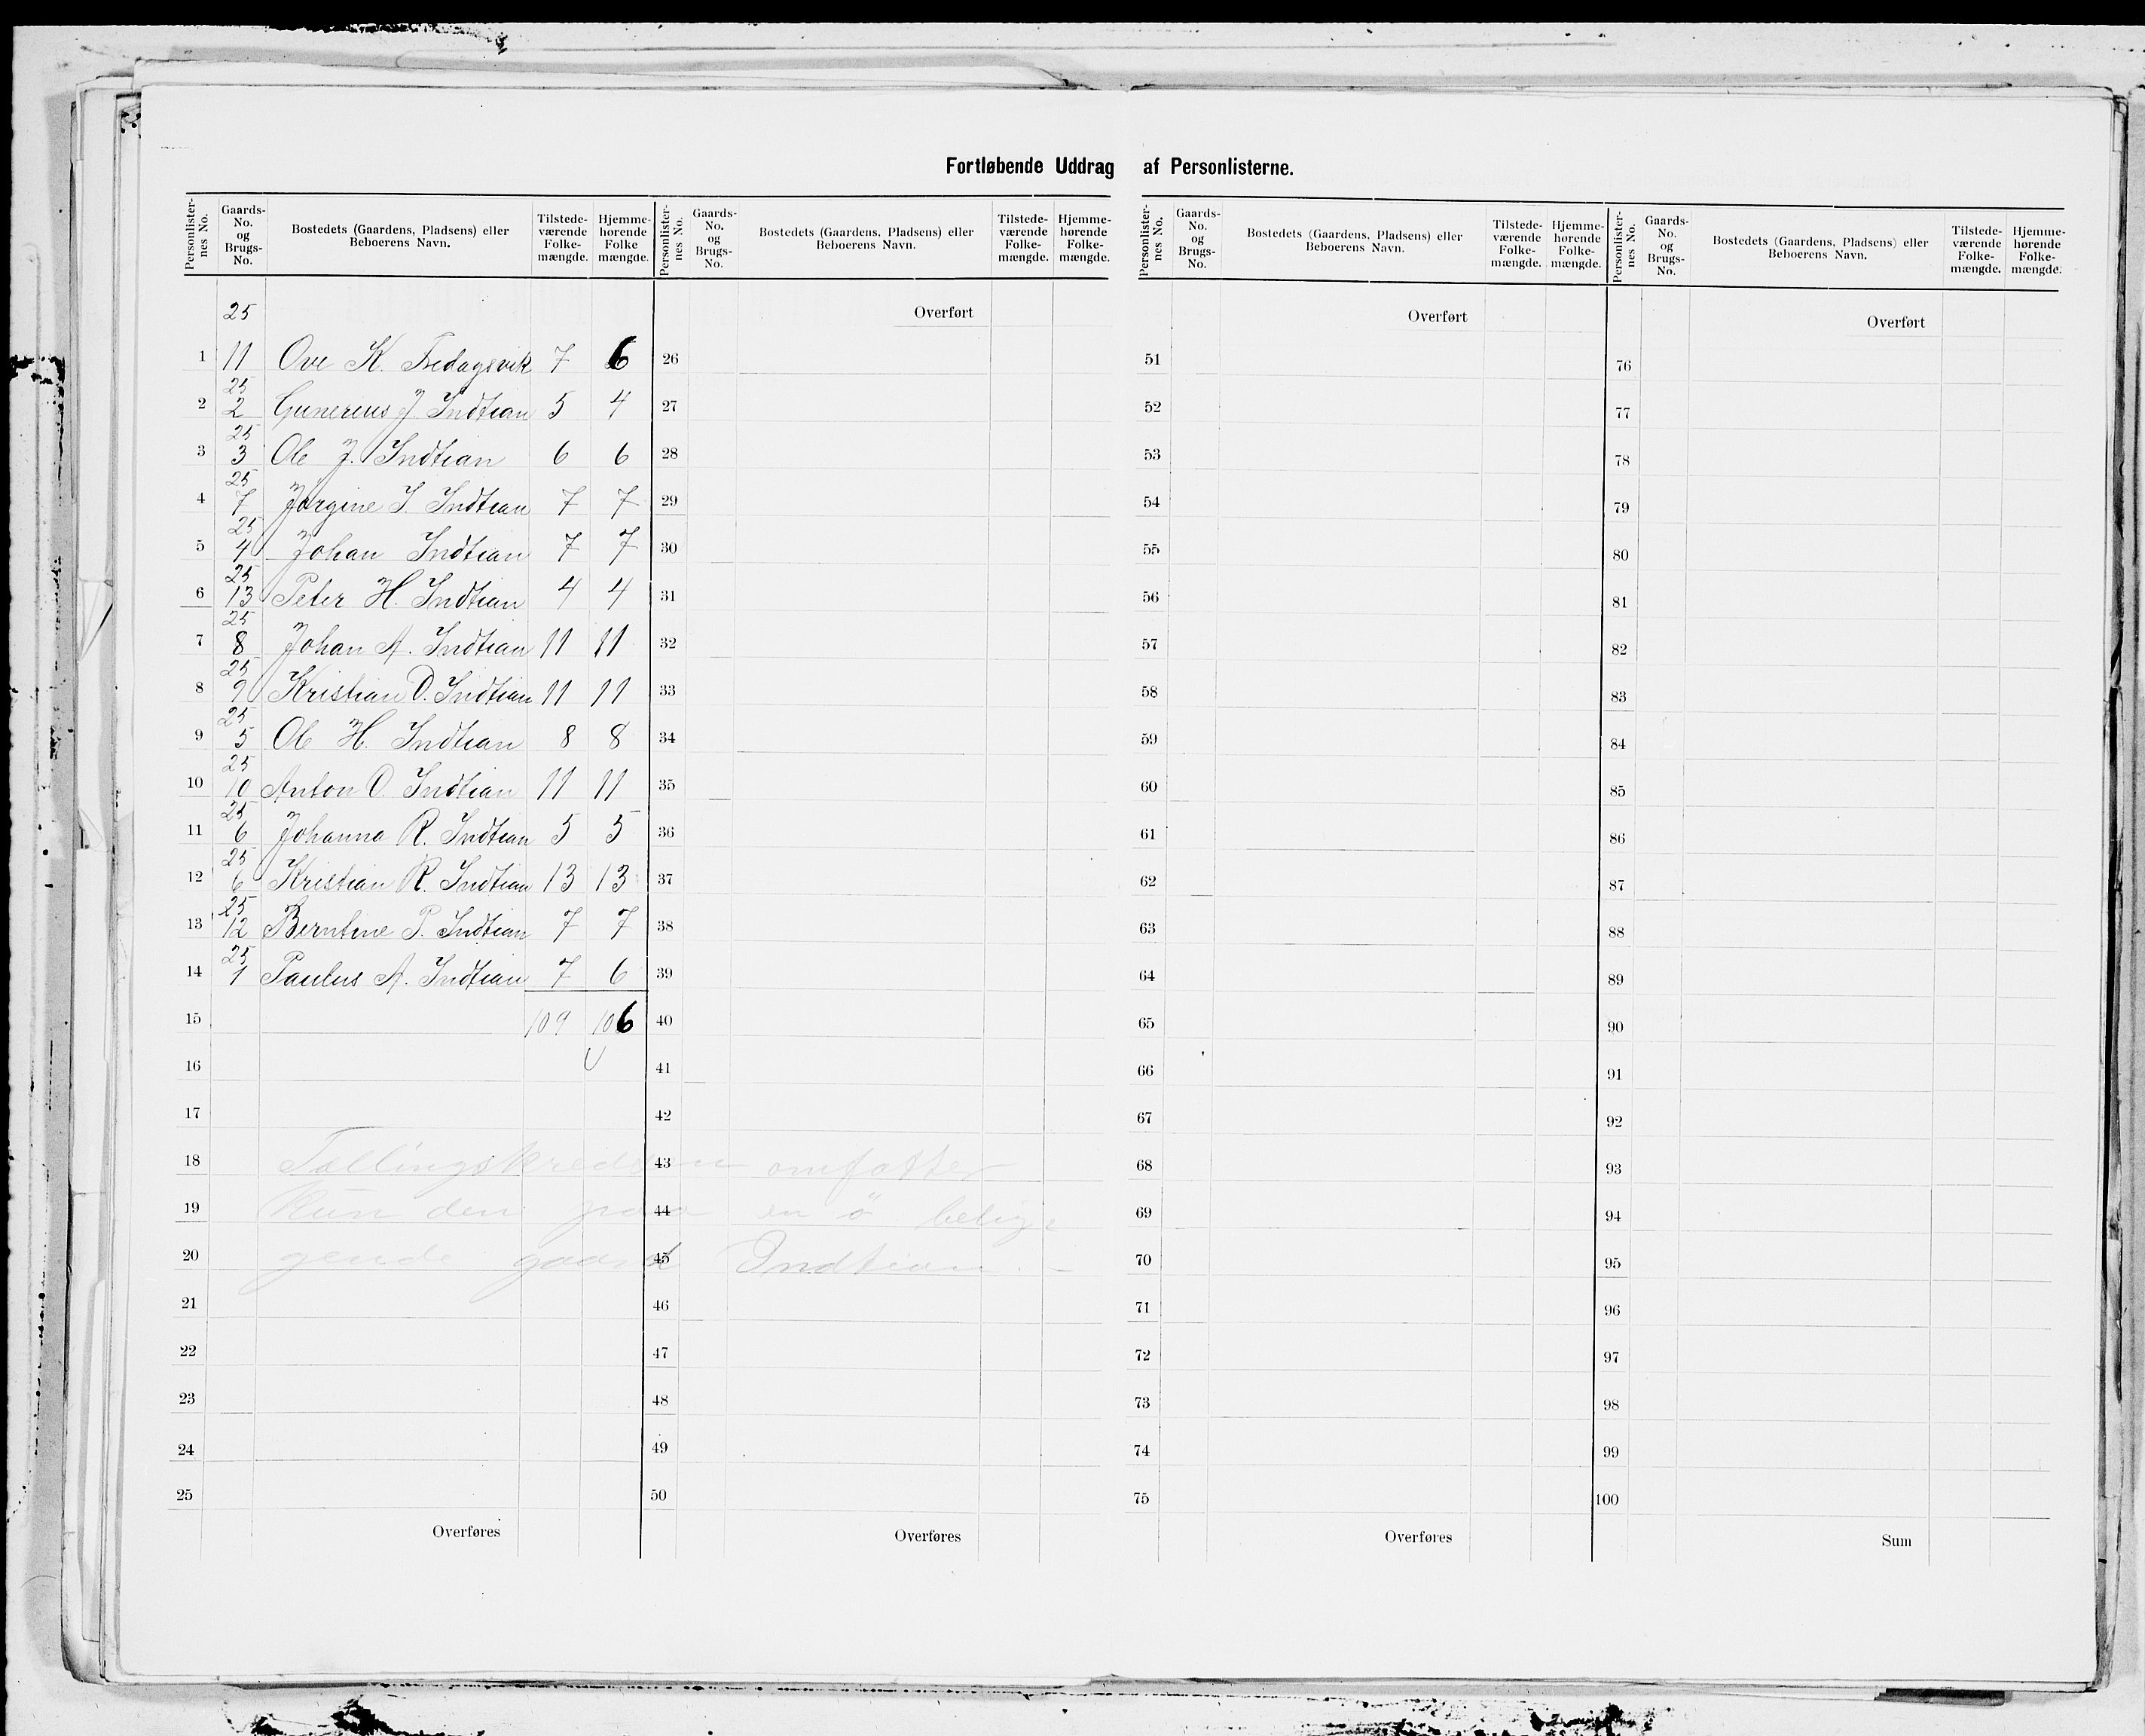 Fortløbende Uddrag af Personlisterne.
Personlister-nes No. | Gaards-No. og Brugs-No. | Bostedets (Gaardens, Pladsens) eller Beboerens Navn. | Tilstede-værende Folke-mængde. | Hjemme-hørende Folke mængde. | Personlister-nes No. | Gaards-No. og Brugs-No. | Bostedets (Gaardens, Pladsens) eller Beboerens Navn. | Tilstede-værende Folke-mængde. | Hjemme-hørende Folke-mængde. | Personlister-nes No. | Gaards-No. og Brugs-No. | Bostedets (Gaardens, Pladsens) eller Beboerens Navn. | Tilstede-værende Folke-mængde. | Hjemme-hørende Folke-mængde. | Personlister-nes No. | Gaards-No. og Brugs-No. | Bostedets (Gaardens, Pladsens) eller Beboerens Navn. | Tilstede-værende Folke-mængde. | Hjemme-hørende Folke-mængde.
25 Overført Overført Overført
1 11 Ove K. Fredagsvik 7 6 26 51 76
25
2 2 Gunerius J. Indtian 5 4 27 52 77
25
3 3 Ole J. Indtian 6 6 28 53 78
25
4 7 Jørgine I. Indtian 7 7 29 54 79
25
5 4 Johan Indtian 7 7 30 55 80
25
6 13 Peter H. Indtian 4 4 31 56 81
25
7 8 Johan A. Indtian 11 11 32 57 82
25
8 9 Kristian O. Indtian 11 11 33 58 83
25
9 5 Ole H. Indtian 8 8 34 59 84
25
10 10 Anton O. Indtian 11 11 35 60 85
25
11 6 Johanna R. Indtian 5 5 36 61 86
25
12 6 Kristian R. Indtian 13 13 37 62 87
25
13 12 Berntine P. Indtian 7 7 38 63 88
25
14 1 Paulus A. Indtian 7 6 39 64 89
15 109 106 40 65 90
16 41 66 91
17 42 67 92
18 Tællingskredsen 43 omfatter 68 93
19 kun den paa 44 en ö belig= 69 94
20 gende gaard 45 Indtian. 70 95
21 46 71 96
22 47 72 97
23 48 73 98
24 49 74 99
25 50 75 100
Overføres Overføres Overføres Sum